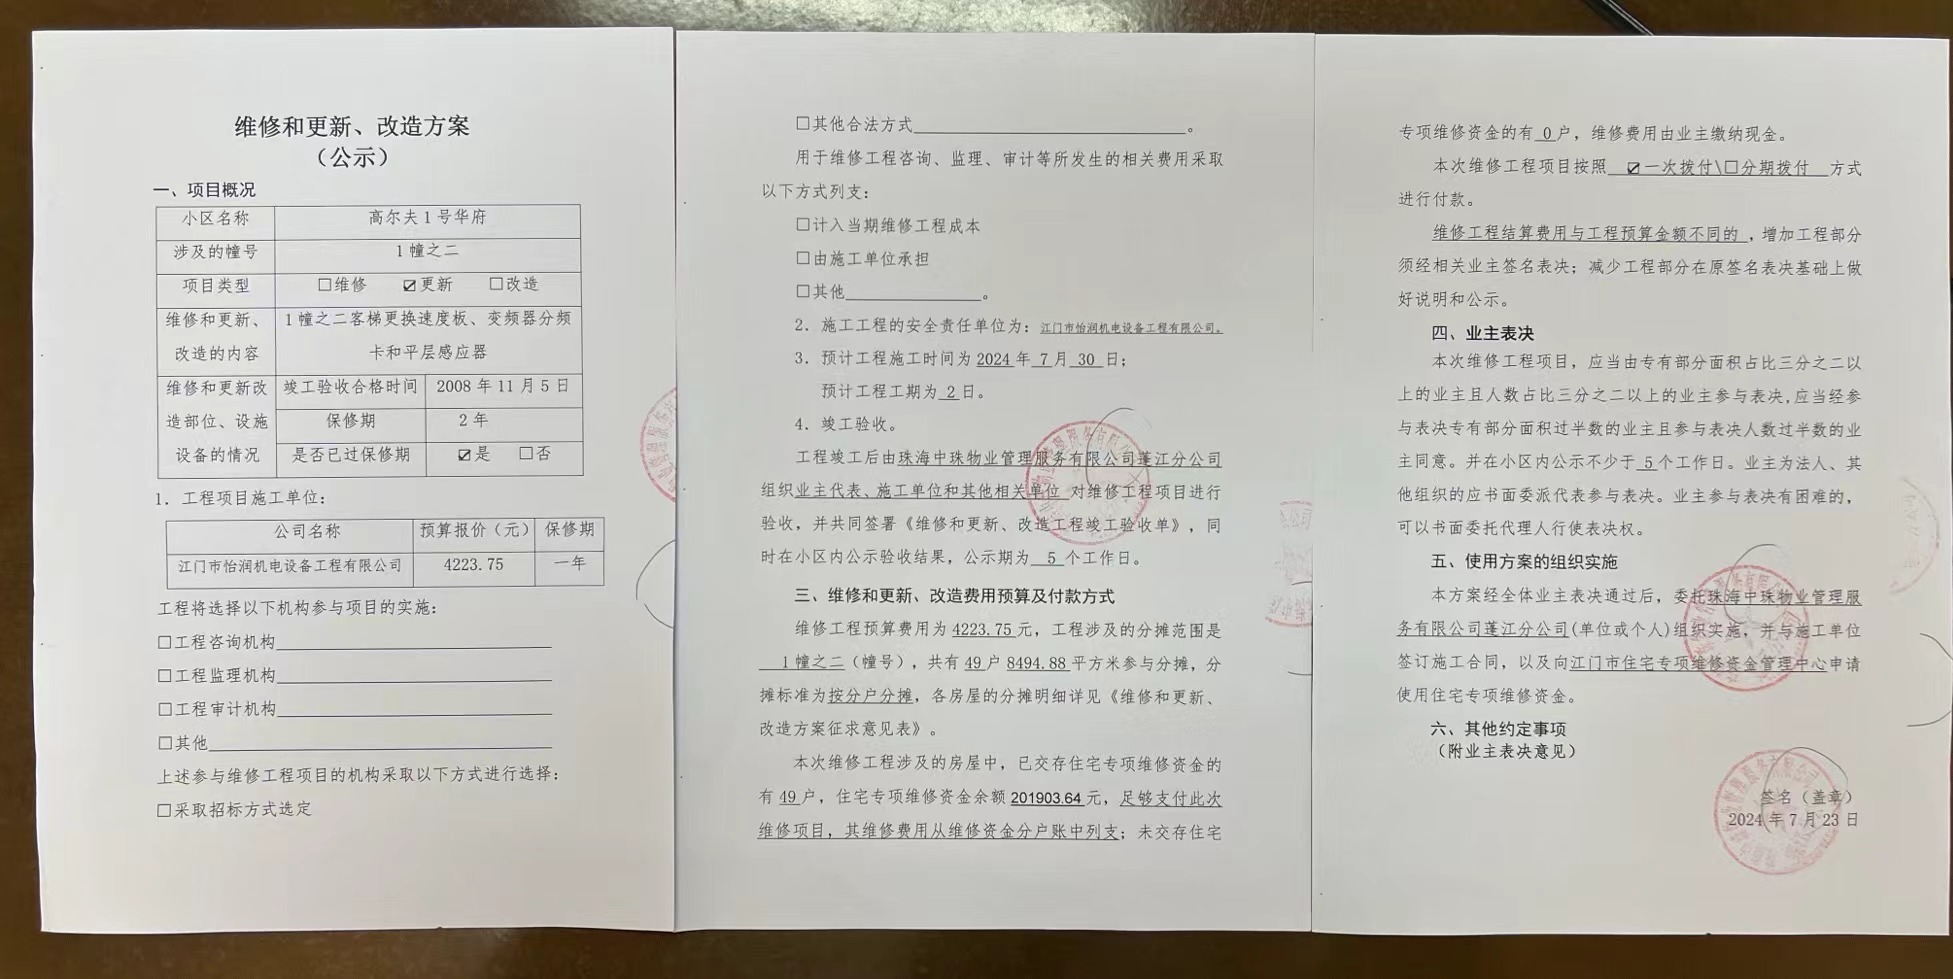 维修和更新、改造方案
（公示）
一、项目概况
小区名称 高尔夫1号华府
涉及的幢号 1幢之二
项目类型 □维修 ☑更新 □改造
维修和更新、改造的内容 1幢之二客梯更换速度板、变频器分频卡和平层感应器
维修和更新改造部位、设施设备的情况 竣工验收合格时间 2008年11月5日
保修期 2年
是否已过保修期 ☑是 □否
1. 工程项目施工单位：
公司名称 预算报价（元） 保修期
江门市怡润机电设备工程有限公司 4223.75 一年
工程将选择以下机构参与项目的实施：
□工程咨询机构
□工程监理机构
□工程审计机构
□其他
上述参与维修工程项目的机构采取以下方式进行选择：
□采取招标方式选定
□其他合法方式 。
用于维修工程咨询、监理、审计等所发生的相关费用采取
以下方式列支：
□计入当期维修工程成本
□由施工单位承担
□其他 。
2. 施工工程的安全责任单位为：江门市怡润机电设备工程有限公司。
3. 预计工程施工时间为 2024 年 7 月 30 日；
预计工程工期为 2 日。
4. 竣工验收。
工程竣工后由珠海中珠物业管理服务有限公司蓬江分公司
组织业主代表、施工单位和其他相关单位 对维修工程项目进行
验收，并共同签署《维修和更新、改造工程竣工验收单》，同
时在小区内公示验收结果，公示期为 5 个工作日。
三、维修和更新、改造费用预算及付款方式
维修工程预算费用为 4223.75 元，工程涉及的分摊范围是
1幢之二（幢号），共有 49 户 8494.88 平方米参与分摊，分
摊标准为按分户分摊，各房屋的分摊明细详见《维修和更新、
改造方案征求意见表》。
本次维修工程涉及的房屋中，已交存住宅专项维修资金的
有 49 户，住宅专项维修资金余额 201903.64 元，足够支付此次
维修项目，其维修费用从维修资金分户账中列支；未交存住宅
专项维修资金的有 0 户，维修费用由业主缴纳现金。
本次维修工程项目按照 ☑一次拨付\□分期拨付 方式
进行付款。
维修工程结算费用与工程预算金额不同的 ，增加工程部分
须经相关业主签名表决；减少工程部分在原签名表决基础上做
好说明和公示。
四、业主表决
本次维修工程项目，应当由专有部分面积占比三分之二以
上的业主且人数占比三分之二以上的业主参与表决,应当经参
与表决专有部分面积过半数的业主且参与表决人数过半数的业
主同意。并在小区内公示不少于 5 个工作日。业主为法人、其
他组织的应书面委派代表参与表决。业主参与表决有困难的，
可以书面委托代理人行使表决权。
五、使用方案的组织实施
本方案经全体业主表决通过后，委托珠海中珠物业管理服
务有限公司蓬江分公司(单位或个人)组织实施，并与施工单位
签订施工合同，以及向江门市住宅专项维修资金管理中心申请
使用住宅专项维修资金。
六、其他约定事项
（附业主表决意见）
签名（盖章）
2024年7月23日